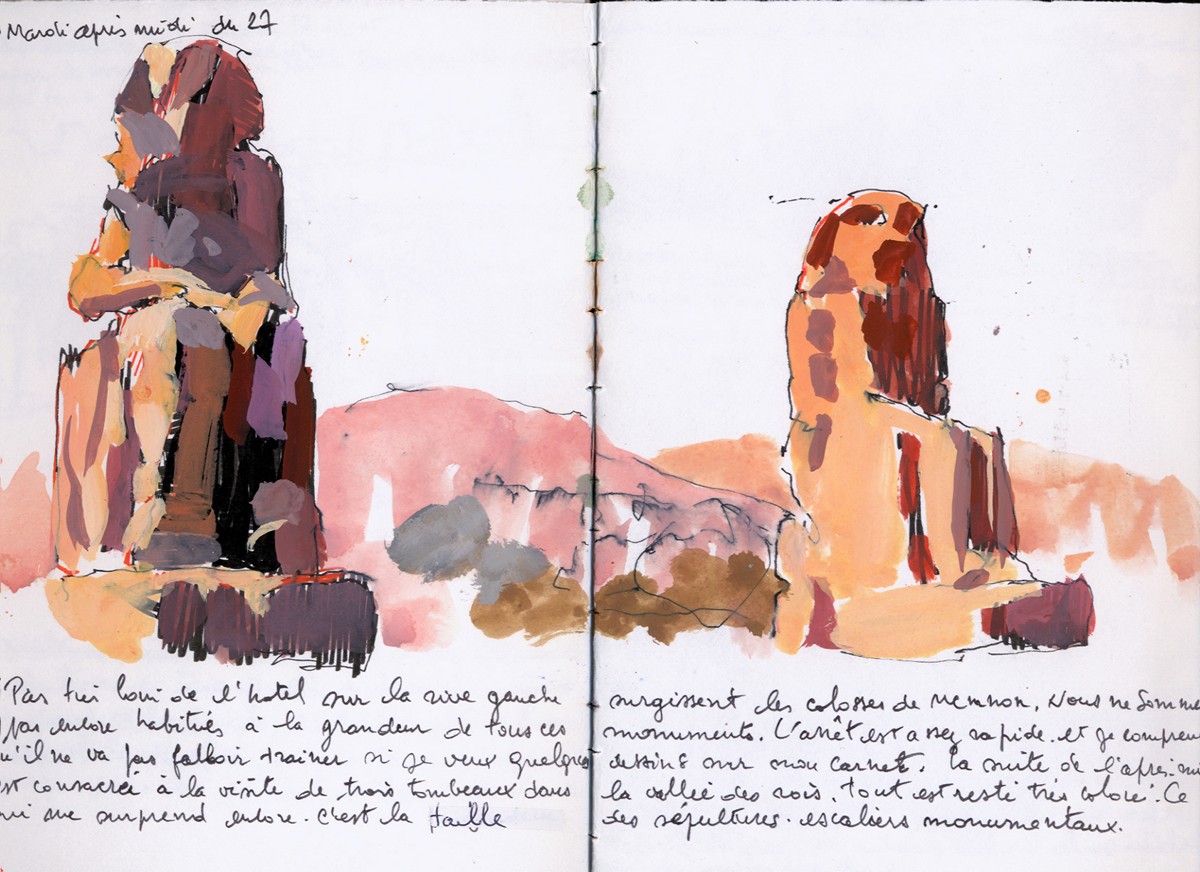 Mardi après midi du 27
Pas très loin de l'hotel sur la rive gauche surgissent les colosses de Memnon, Nous ne Somme
pas encore habitués à la grandeur de tous ces monuments. L'arrêt est assez rapide. et je compren
u'il ne va pas falloir trainer si je veux quelques dessins sur mon carnet. La suite de l'après-mi
st consacrée à la visite de trois tombeaux dans la vallée des rois. Tout est resté très coloré. Ce
ui me surprend encore. c'est la taille des sépultures. escaliers monumentaux.